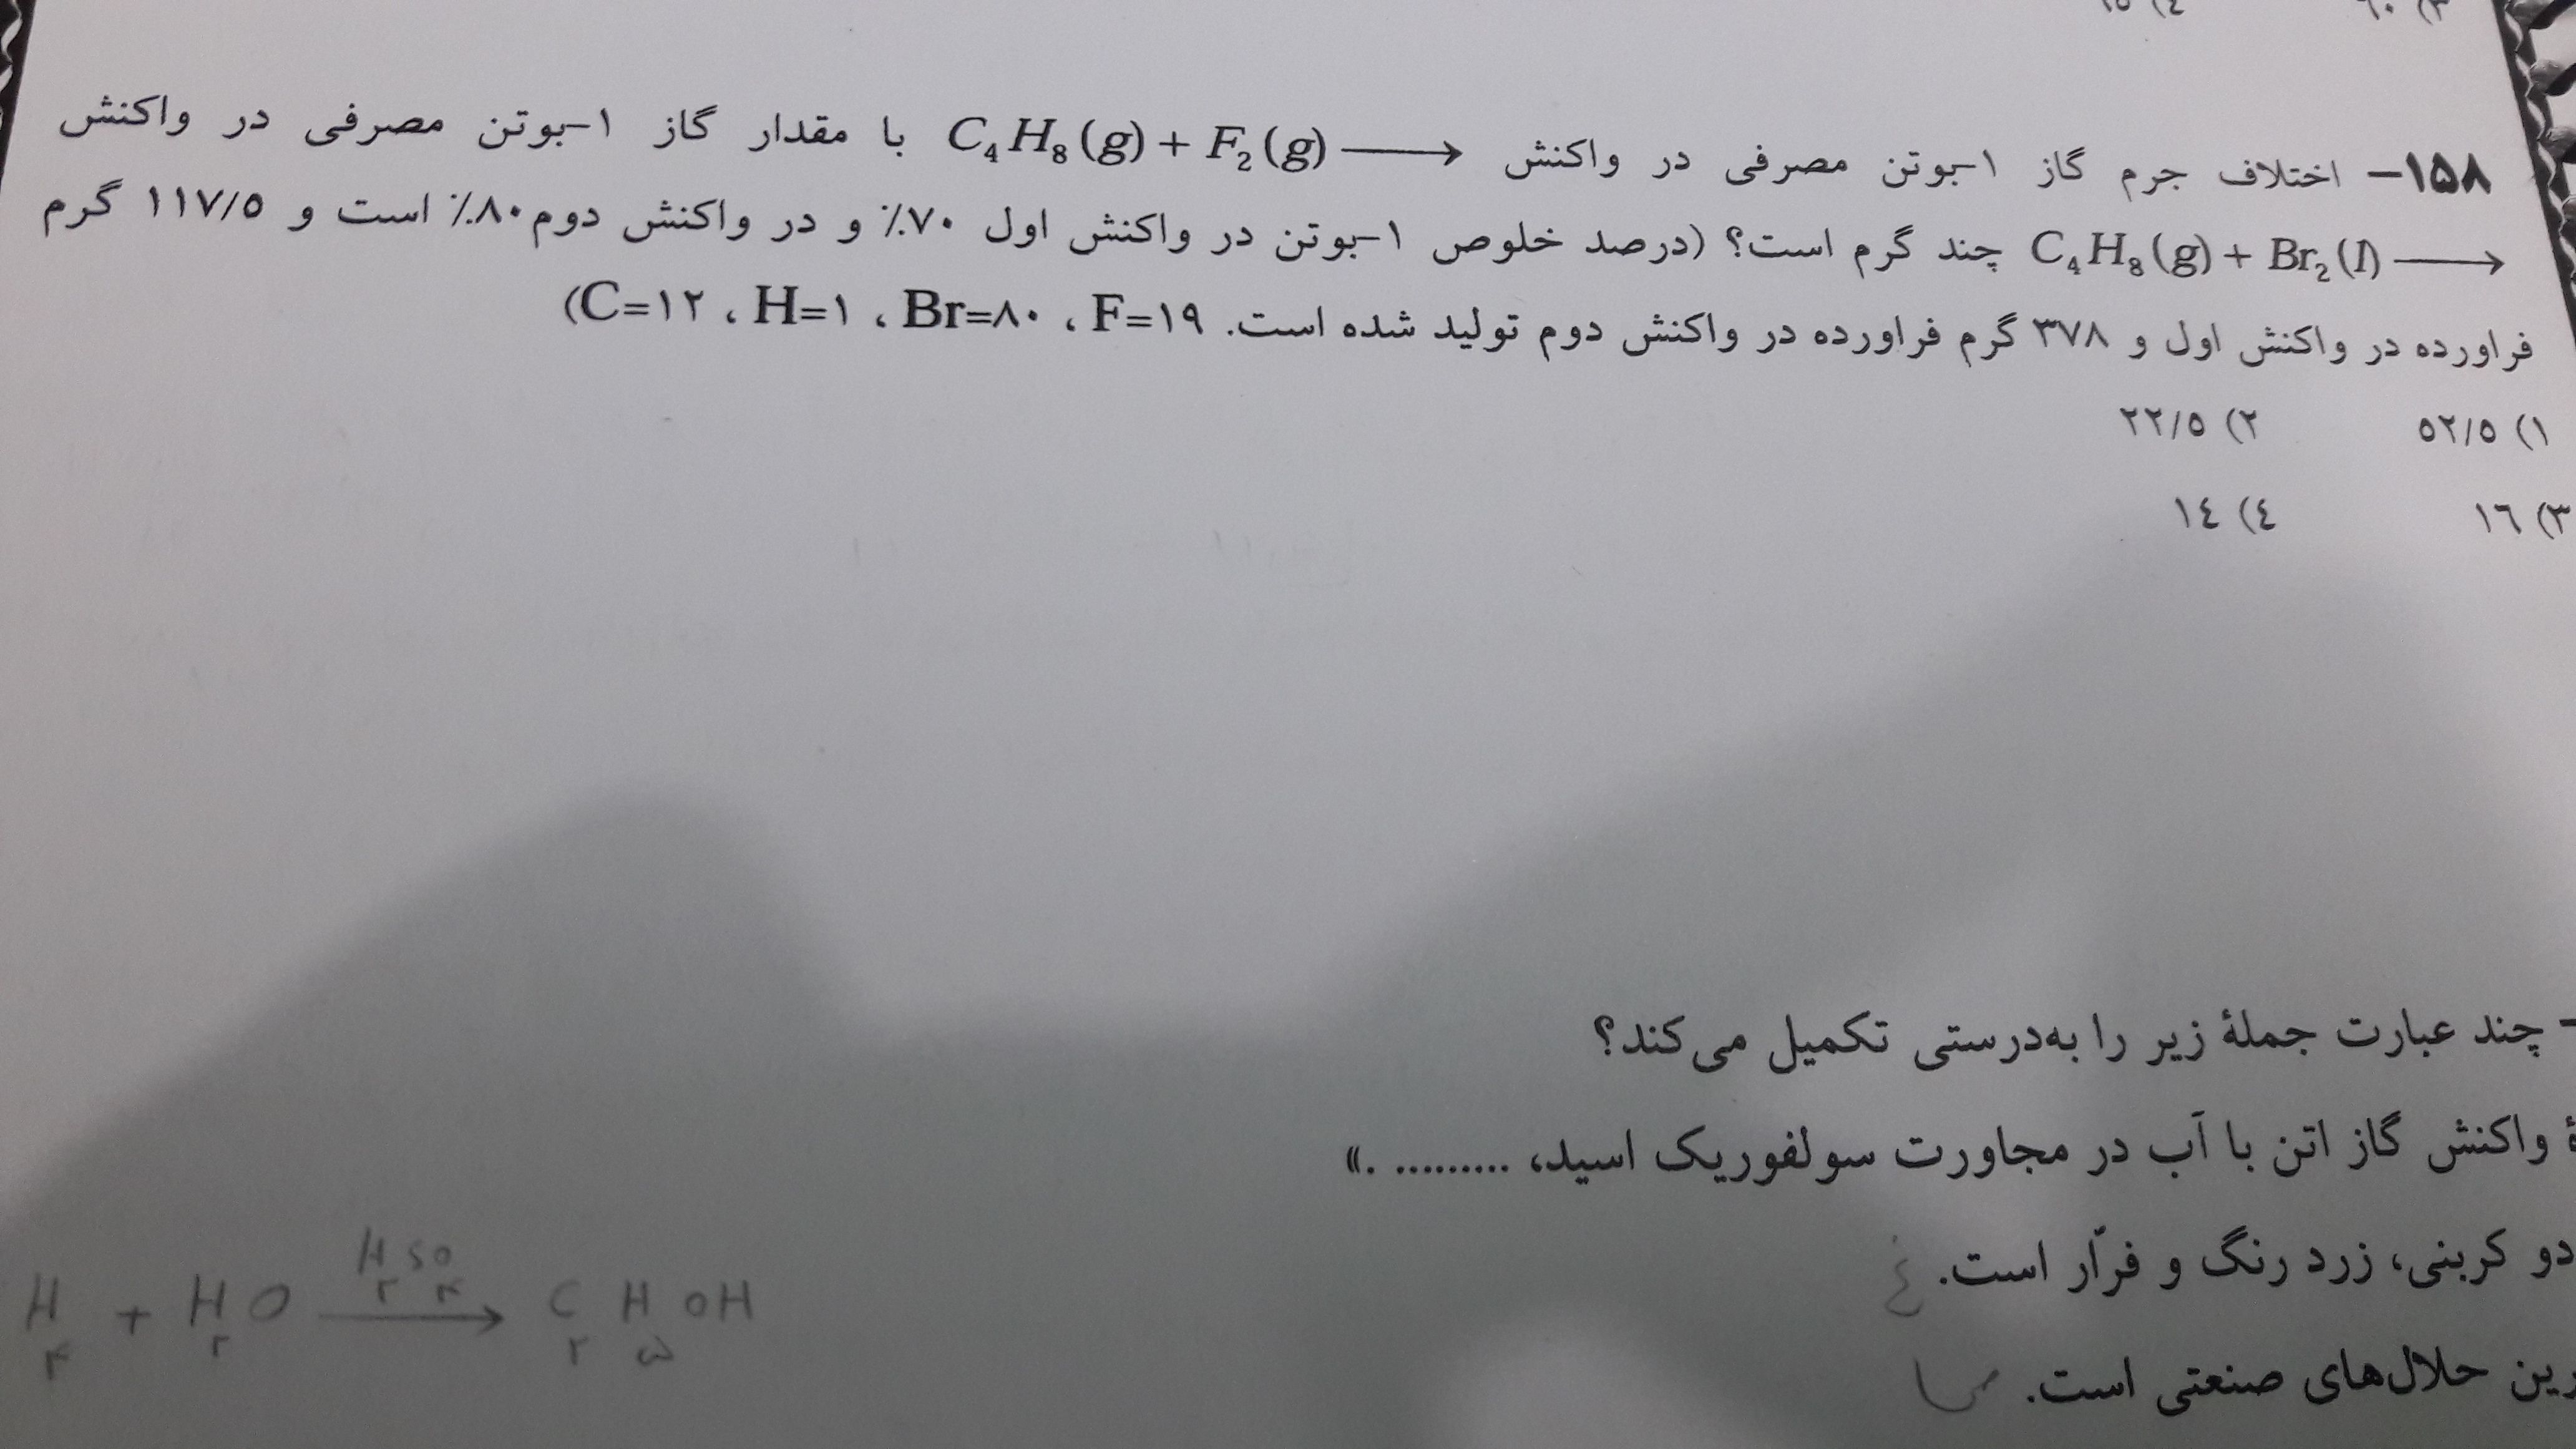 ٣) ٦٠ ٤) ١٥
١٥٨- اختلاف جرم گاز ١-بوتن مصرفی در واکنش C₄H₈(g) + F₂(g) ⟶ با مقدار گاز ١-بوتن مصرفی در واکنش
C₄H₈(g) + Br₂(l) ⟶ چند گرم است؟ (درصد خلوص ١-بوتن در واکنش اول ٧٠٪ و در واکنش دوم ٨٠٪ است و ١١٧/٥ گرم
فراورده در واکنش اول و ٣٧٨ گرم فراورده در واکنش دوم تولید شده است. C=١٢ ، H=١ ، Br=٨٠ ، F=١٩)
١) ٥٢/٥ ٢) ٢٢/٥
٣) ١٦ ٤) ١٤
- چند عبارت جملهٔ زیر را به‌درستی تکمیل می‌کند؟
واکنش گاز اتن با آب در مجاورت سولفوریک اسید، ......... .»
دو کربنی، زرد رنگ و فرّار است.
حلال‌های صنعتی است.
H₄ + H₂O ⟶ C₂H₅OH
H₂SO₄